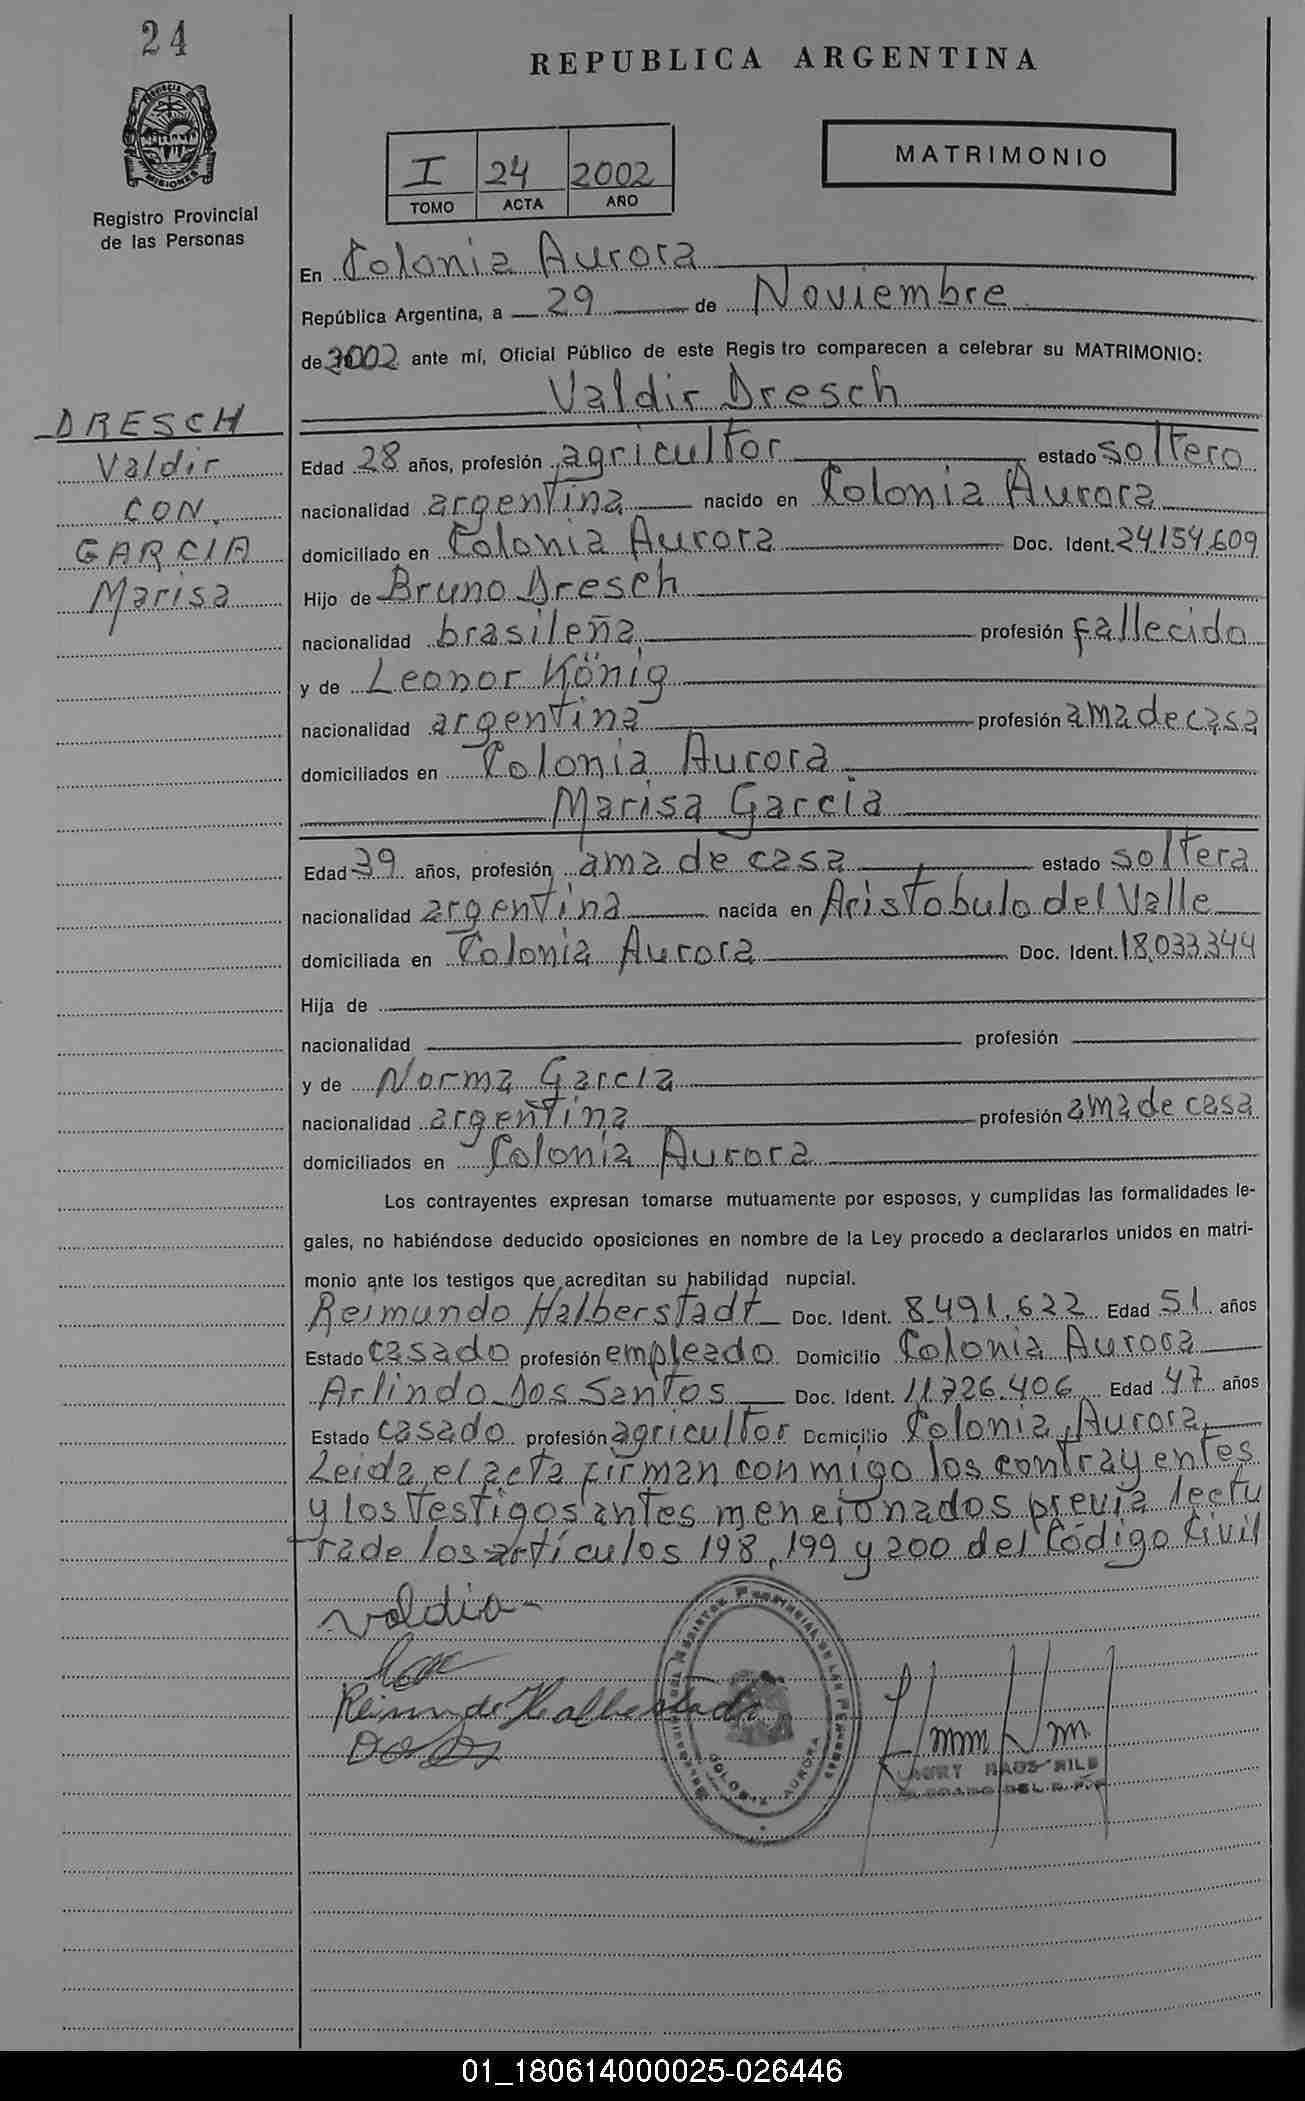 24
REPUBLICA ARGENTINA
PROVINCIA DE
MISIONES
Registro Provincial
de las Personas
I 24 2002
TOMO ACTA AÑO
MATRIMONIO
En Colonia Aurora
República Argentina, a 29 de Noviembre
de 2002 ante mí, Oficial Público de este Registro comparecen a celebrar su MATRIMONIO:
Valdir Dresch
DRESCH
Valdir
CON
GARCIA
Marisa
Edad 28 años, profesión agricultor estado soltero
nacionalidad argentina nacido en Colonia Aurora
domiciliado en Colonia Aurora Doc. Ident. 24.154.609
Hijo de Bruno Dresch
nacionalidad brasileña profesión fallecido
y de Leonor König
nacionalidad argentina profesión ama de casa
domiciliados en Colonia Aurora
Marisa Garcia
Edad 39 años, profesión ama de casa estado soltera
nacionalidad argentina nacida en Aristobulo del Valle
domiciliada en Colonia Aurora Doc. Ident. 18.033.344
Hija de
nacionalidad profesión
y de Norma Garcia
nacionalidad argentina profesión ama de casa
domiciliados en Colonia Aurora
Los contrayentes expresan tomarse mutuamente por esposos, y cumplidas las formalidades le-
gales, no habiéndose deducido oposiciones en nombre de la Ley procedo a declararlos unidos en matri-
monio ante los testigos que acreditan su habilidad nupcial.
Reimundo Halberstadt Doc. Ident. 8.491.622 Edad 51 años
Estado casado profesión empleado Domicilio Colonia Aurora
Arlindo Dos Santos Doc. Ident. 11.726.406 Edad 47 años
Estado casado profesión agricultor Domicilio Colonia Aurora
Leida el acta firman conmigo los contrayentes
y los testigos antes mencionados previa lectu
ra de los artículos 198, 199 y 200 del Código Civil
Valdir
Reimundo Halberstadt
COLONIA AURORA
01_180614000025-026446